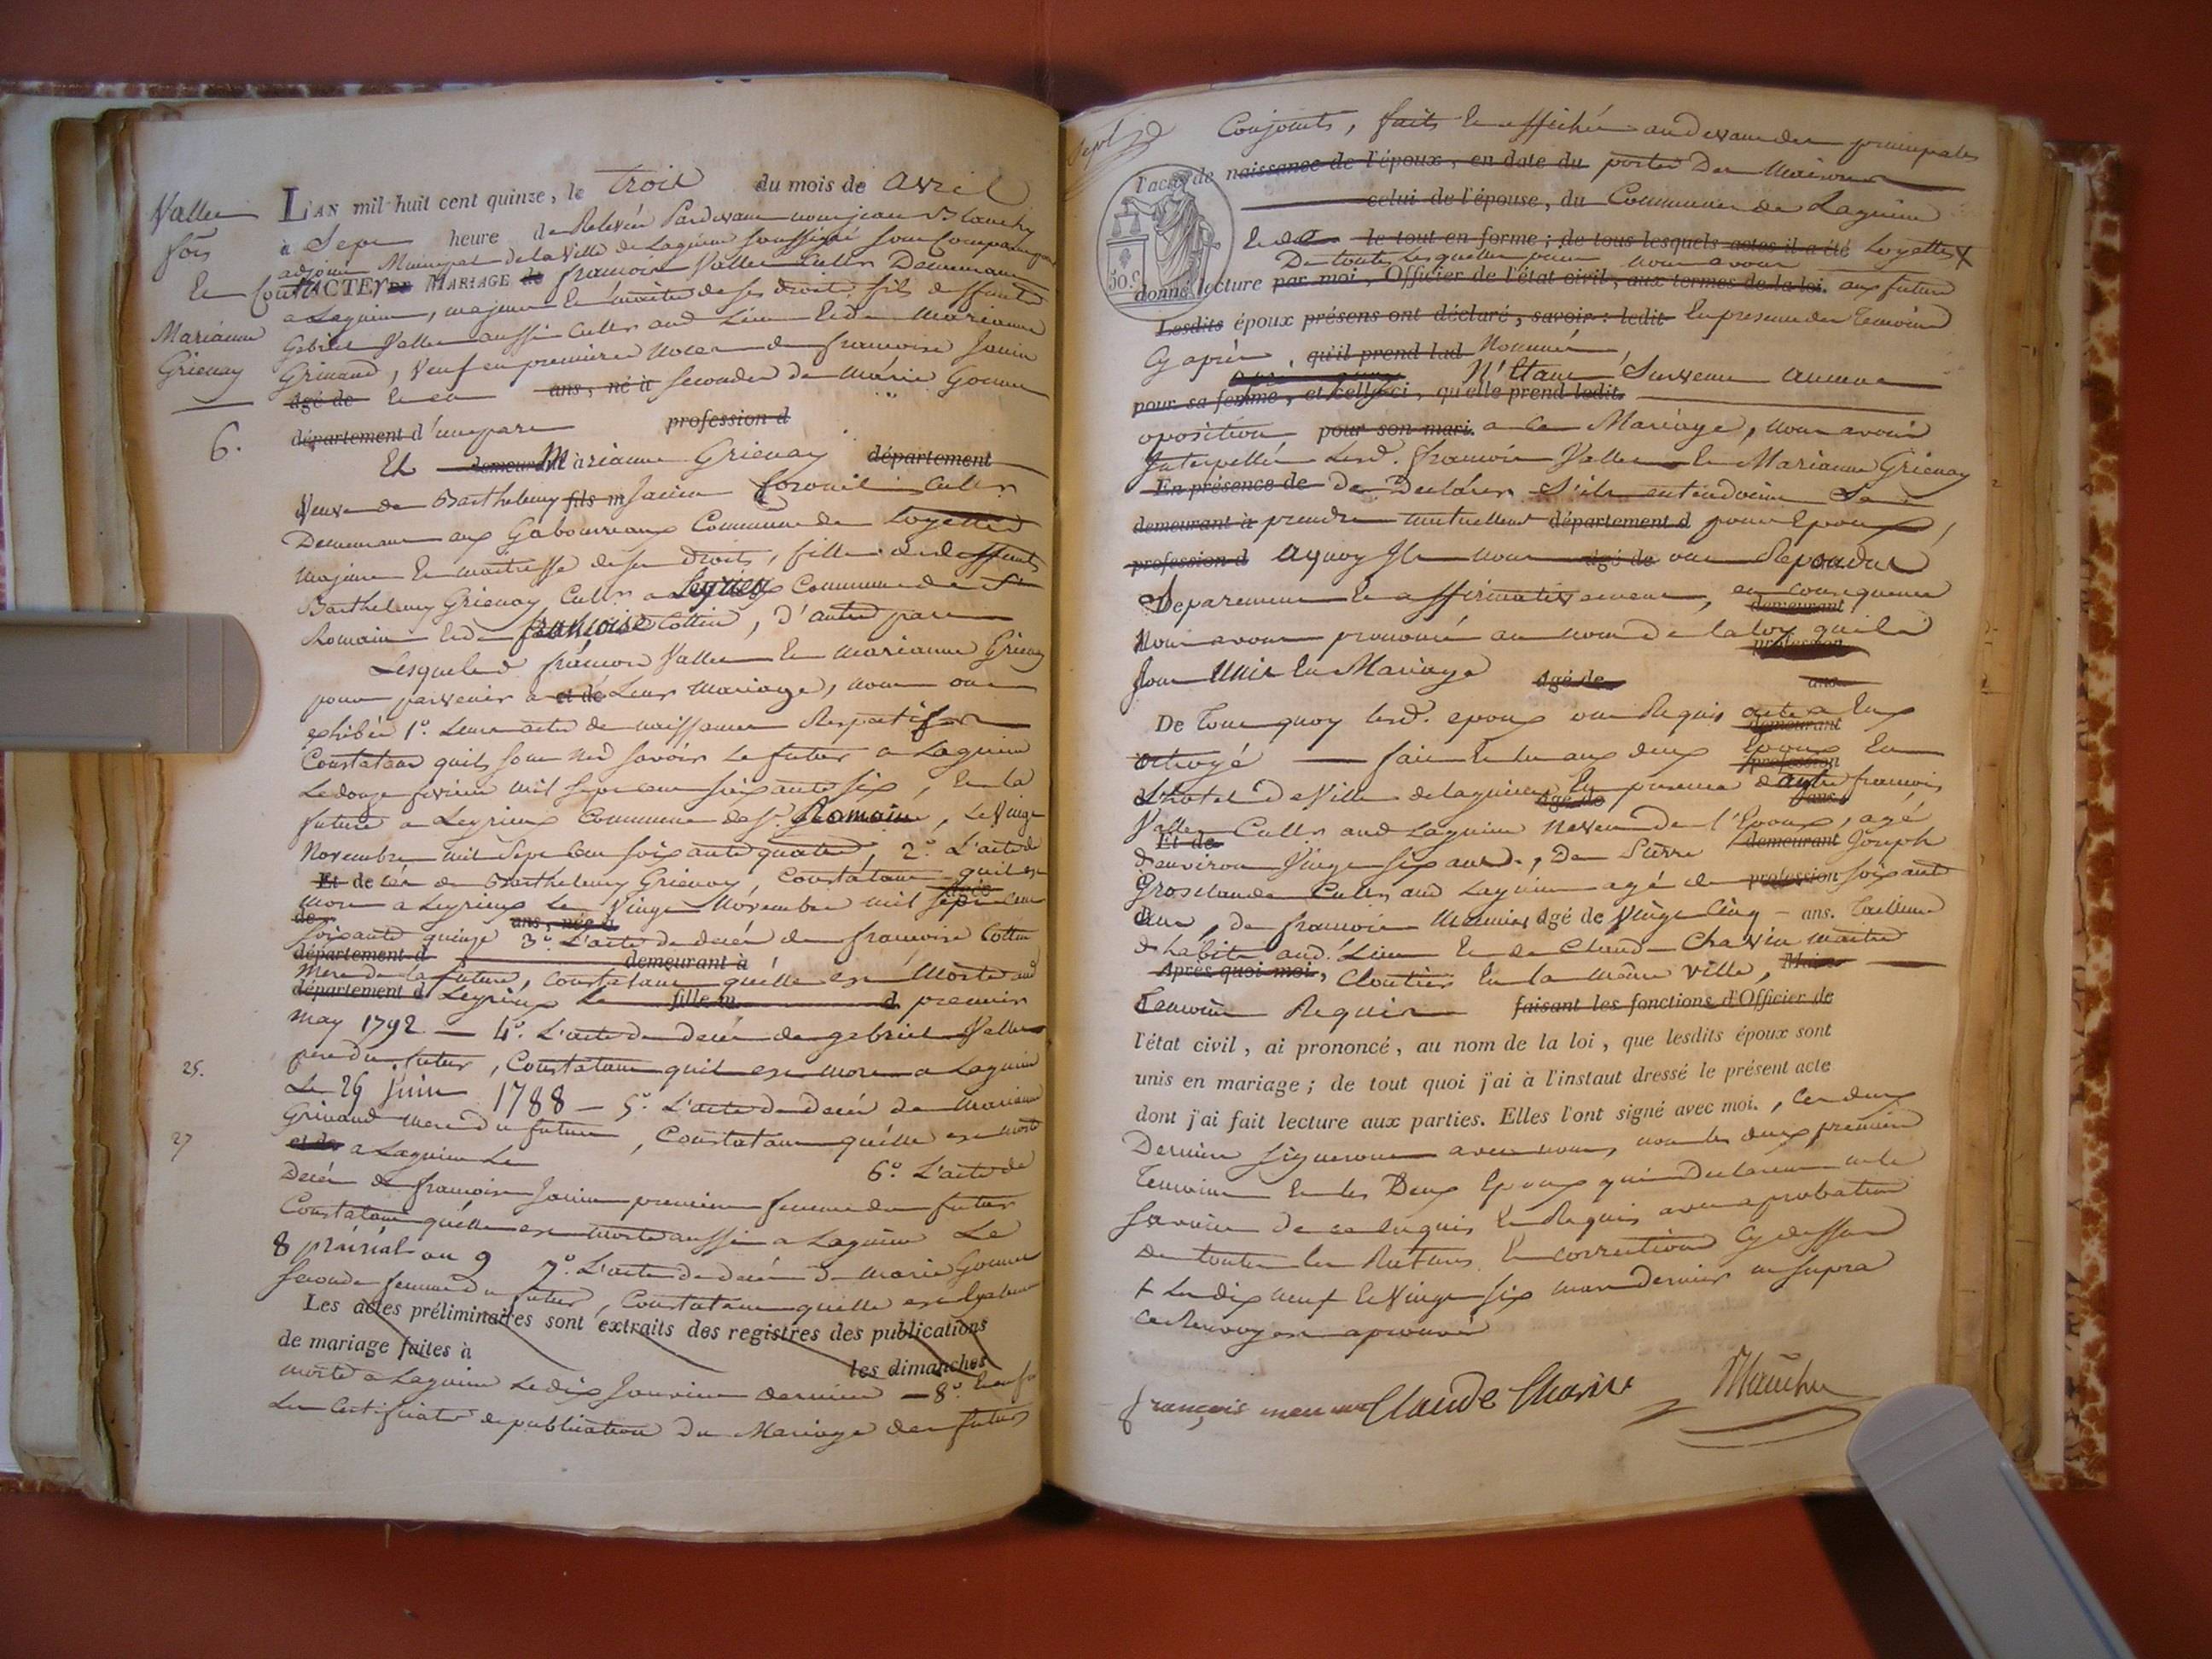 Vallet
fois
et
Marianne
Grienay
6.
L'AN mil-huit cent quinze, le trois du mois de avril
à Sept heure de Relevée Pardevant nous jean Blanchy
adjoint Municipal de la Ville de Lagnieu soussigné sont Comparus
ACTE DE MARIAGE de françois Vallet Cultr Demeurant
a Lagnieu, majeur et maitre de ses droits, fils deffunts
Gabriel Vallet aussi Cultr aud Lieu et de Marianne
Grinand, Veuf en premiere noces de francoise Janin
âgé de et en ans, né à secondes de Marie Gonnet
département d'une part profession d
Et demeurant Marianne Grienay département
Veuve de Barthelemy fils m Janin Cultr
Demeurant aux Gaboureaux Commune de Loyettes
majeure et maitresse de ses droits, fille des deffunts
Barthelemy Grienay Cultr a Leyrieux Commune de St
Romain et de francoise Cottin, d'autre part
Lesquels françois Vallet et marianne Grienay
pour parvenir a et de Leur mariage, nous ont
exhibés 1.o Leurs actes de naissance Respectifs
Constatant quils sont nés savoir Le futur a Lagnieu
Le douze fevrier mil sept cent soixante six, et la
future a Leyrieux Commune de St. Romain, Le Vingt
Novembre mil sept cent soixante quatre, 2.o L'acte de
Et de cés de Barthelemy Grienay, Constatant quil est
mort a Leyrieux Le Vingt Novembre mil sept cent
de ans, née à
soixante quinze 3.o L'acte de decés de francoise Cottin
département d demeurant à
mere de la future, constatant quelle est Morte aud
département d Leyrieux Le fille m d premier
May 1792 — 4.o L'acte de decés de gabriel Vallet
25.
pere du futur, Constatant quil est mort a Lagnieu
Le 26 Juin 1788 — 5.o L'acte de decés de Marianne
27
Grinand mere du futur, Constatant quelle est morte
et de a Lagnieu Le 6.o L'acte de
Decés de francoise Janin premiere femme du futur
Constatant quelle est morte aussi a Lagnieu Le
8 prairial an 9 7.o L'acte de decés de Marie Gonnet
seconde femme du futur, Constatant quelle est
Les actes préliminaires sont extraits des registres des publications
de mariage faites à les dimanches
morte a Lagnieu Le dix Janvier dernier — 8.o Enfin
Les Certificats de publication du Mariage des futurs
Conjoints, faits et affichés audevant des principales
l'acte de naissance de l'époux, en date du portes Des Maisons
celui de l'épouse, du Communes de Lagnieu
50 c.
et de le tout en forme ; de tous lesquels actes il a été Loyettes X
De toutes lesquelles pieces nous avons
donné lecture par moi, Officier de l'état civil, aux termes de la loi. aux futurs
Lesdits époux présens ont déclaré, savoir : ledit En presence des Temoins
Cy après, qu'il prend lad Nommés
N'etant Survenu aucune
pour sa femme, et celle-ci, qu'elle prend ledit
oposition pour son mari. a ce Mariage, nous avons
Interpellés Lesd. françois Vallet et Marianne Grienay
En présence de De Declarer S'ils entendoient Se
demeurant à prendre mutuellement département d pour Epoux,
profession d aquoy Ils nous âgé de ont Repondus
Separement et affirmativement, en consequence
demeurant
Nous avons prononcé au nom de la loy quils
profession
sont Unis En Mariage âgé de ans
De tout quoy lesd. epoux ont Requis acte a Eux
demeurant
octroyé — fait et lu aux deux Epoux En
profession
L'hotel de Ville de Lagnieu En presence d'autre francois
âgé de ans
Vallet Cultr aud Lagnieu Neveu de l'Epoux, agé
Et de
d'environ Vingt six ans, De Pierre demeurant Joseph
Grosclaude Cultr aud Lagnieu agé de profession soixante
ans, de francois Meunier âgé de Vingt Cinq — ans. Tailleur
d'habits aud. Lieu et de Claude Chavin maitre
Après quoi moi, Cloutier En la même ville, Maire
Temoins Requis faisant les fonctions d'Officier de
l'état civil, ai prononcé, au nom de la loi, que lesdits époux sont
unis en mariage ; de tout quoi j'ai à l'instaut dressé le présent acte
dont j'ai fait lecture aux parties. Elles l'ont signé avec moi., Ces deux
Derniers signeront avec nous, non les deux premiers
Temoins et les Deux Epoux qui ont Declarer ne le
savoir de ce enquis et Requis avec aprobation
de toutes les Ratures et corrections Cy dessus
+ Les dix neuf et Vingt six mars dernier ut supra
Ce Renvoy est aprouvé
françois meunier Claude Chavin